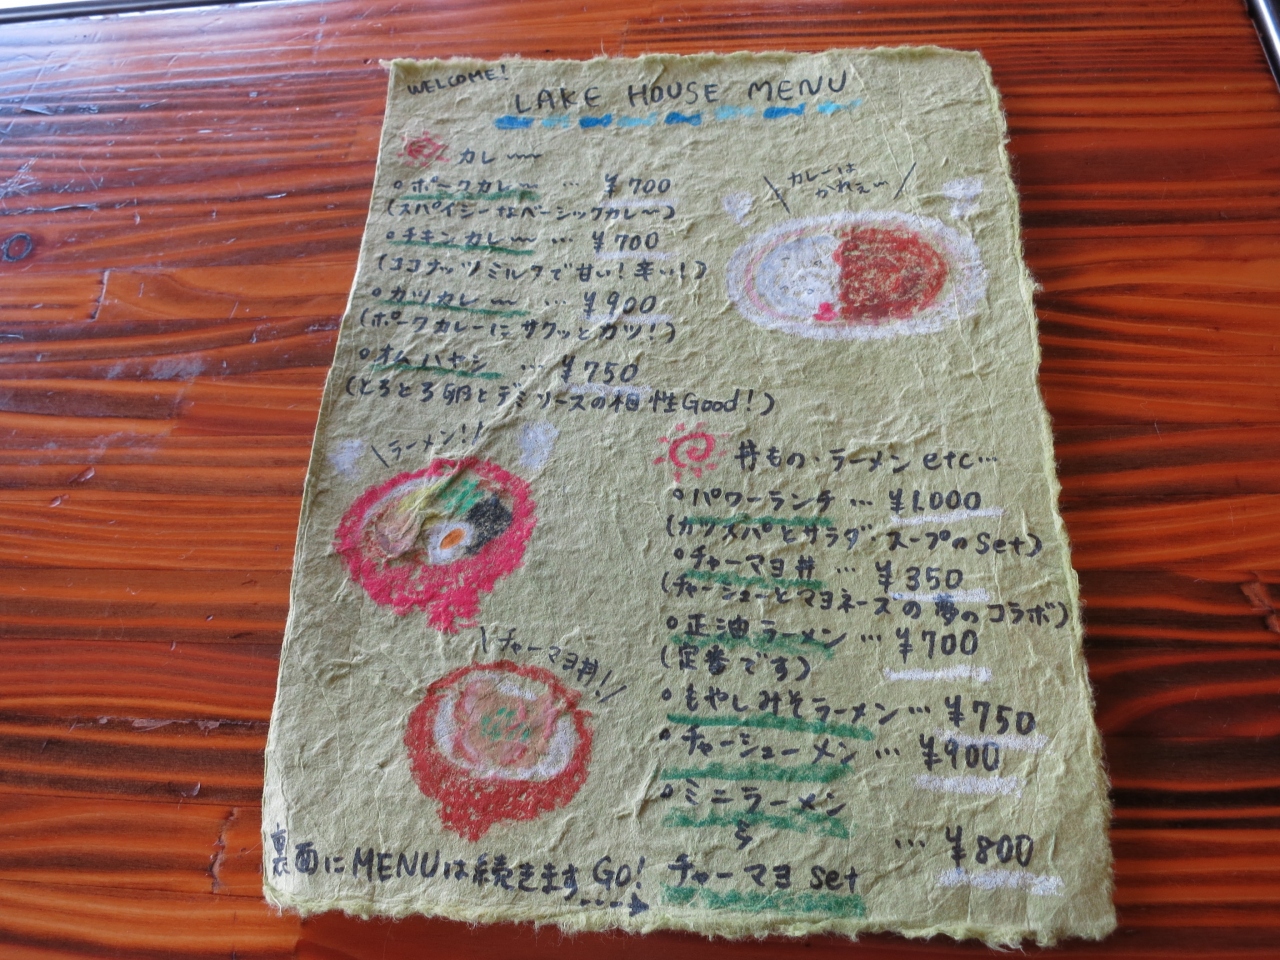 WELCOME!
LAKE HOUSE MENU
カレー
○ポークカレー … ¥700
(スパイシーなベーシックカレー)
○チキンカレー … ¥700
(ココナッツミルクで甘い!辛い!)
○カツカレー … ¥900
(ポークカレーにサクッとカツ!)
○オムハヤシ … ¥750
(とろとろ卵とデミソースの相性Good!)
カレーは
かれぇー
ラーメン!!
チャーマヨ丼!
丼もの・ラーメン etc…
○パワーランチ … ¥1,000
(カツスパとサラダ・スープのset)
○チャーマヨ丼 … ¥350
(チャーシューとマヨネーズの夢のコラボ)
○正油ラーメン … ¥700
(定番です)
○もやしみそラーメン … ¥750
○チャーシューメン … ¥900
○ミニラーメン
&
チャーマヨ set … ¥800
裏面にMENUは続きます GO!